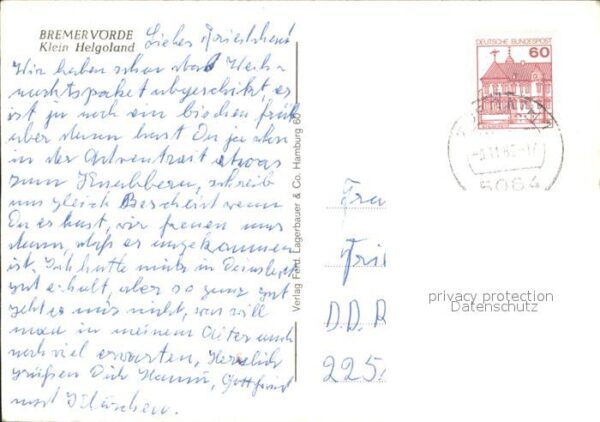 BREMERVÖRDE
Klein Helgoland
Liebes
Wir haben schon das Weih-
nachtspaket abgeschickt, es
ist ja noch ein bischen früh
aber dann hast Du ja schon
in der Adventszeit etwas
zum Knabbern, schreib
uns gleich Bescheist wenn
Du es hast, wir freuen uns
dann, daß es angekommen
ist. Ich hatte mich in
gut erholt, aber so ganz gut
geht es mir nicht, was will
man in meinem Alter auch
noch viel erwarten, Herzlich
grüßen Dich Hanni, Gottfried
und
Verlag Ferd. Lagerbauer & Co. Hamburg 60
DEUTSCHE BUNDESPOST
60
5064
Frau
D.D.R
225
privacy protection
Datenschutz